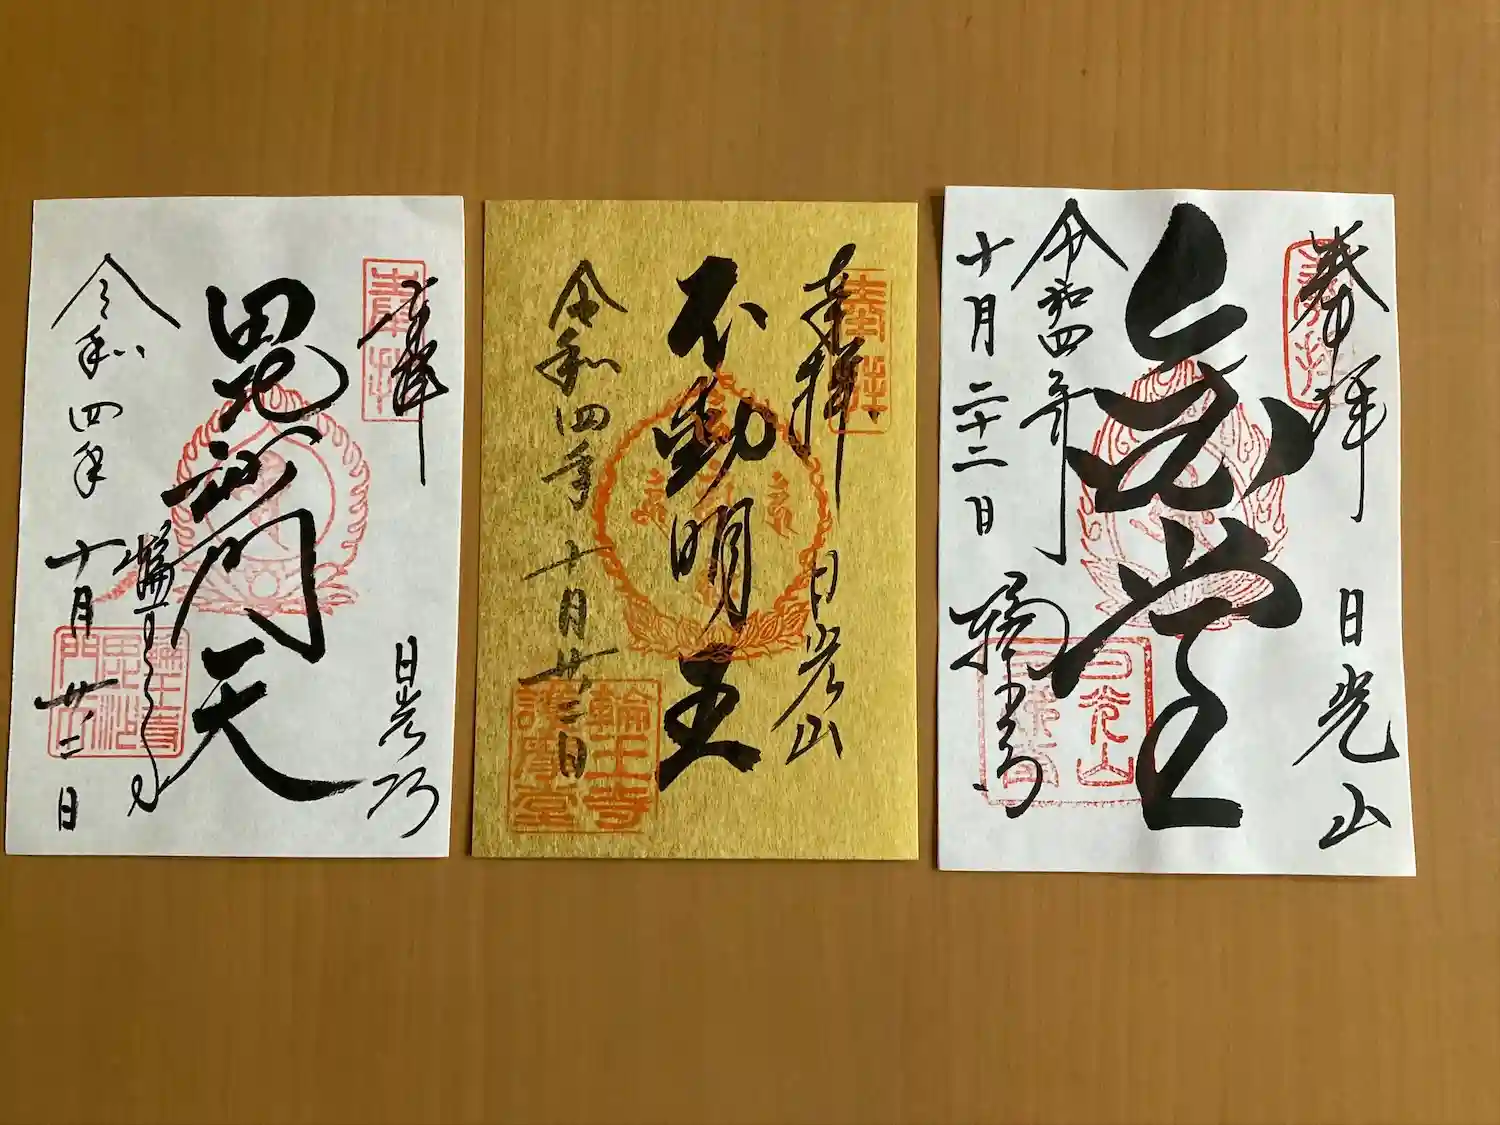 奉拝
奉拝
日光山
毘沙門天
輪王寺
毘沙
門天
輪王寺
令和四年
十月廿二日
奉拝
奉拝
日光山
不動明王
輪王寺
護摩堂
令和四年十月廿二日
奉拝
奉拝
日光山
金堂
日光山
令和四年
十月二十二日
輪王寺